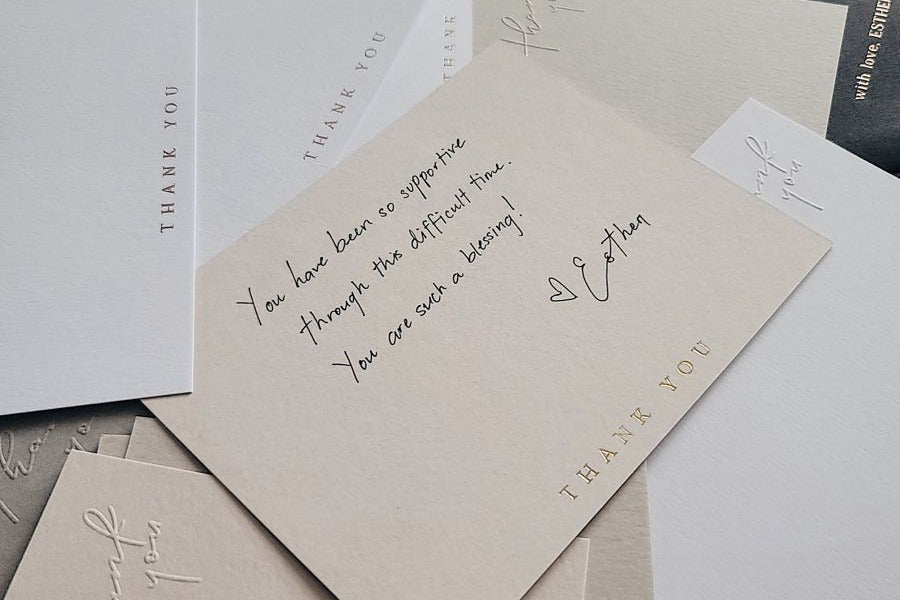 THANK YOU
THANK YOU
THANK
thank
you
with love, ESTHER
you
You have been so supportive
through this difficult time.
You are such a blessing!
♡ Esther
THANK YOU
you